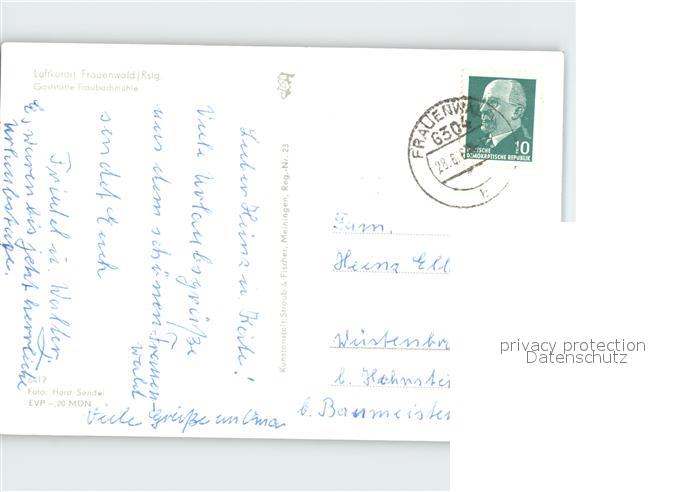 Luftkurort Frauenwald/Rstg.
Gaststätte Fraubachmühle
Lieber Heinz u. Käte!
Viele Urlaubsgrüße
aus dem schönen Frauen-
wald
sendet Euch
Friedel u. Walter
Es waren bis jetzt herrliche
Urlaubstage.
Viele Grüße an Oma
Kunstanstalt Straub & Fischer, Meiningen, Reg.-Nr. 23
FRAUENWALD
6304
28.6.
b
10
DEUTSCHE
DEMOKRATISCHE REPUBLIK
Fam.
Heinz Ell
Wüstenbr
b. Hohnstei
b. Baumeister
privacy protection
Datenschutz
Foto: Horst Sendel
EVP -,20 MDN